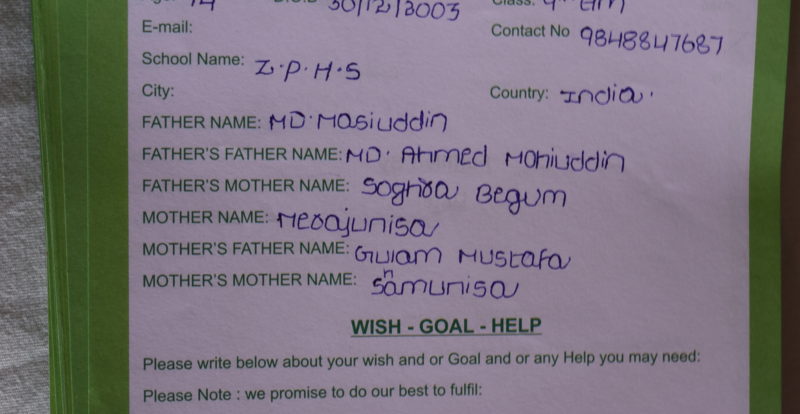 Age: 14 D.O.B 30/12/2003 Class: 9th EM
E-mail:
Contact No 9848847687
School Name: Z.P.H.S
City: Country: India.
FATHER NAME: MD. Masiuddin
FATHER'S FATHER NAME: MD. Ahmed Mohiuddin
FATHER'S MOTHER NAME: Soghra Begum
MOTHER NAME: Merajunisa
MOTHER'S FATHER NAME: Gulam Mustafa
MOTHER'S MOTHER NAME: Shamunisa
WISH - GOAL - HELP
Please write below about your wish and or Goal and or any Help you may need:
Please Note : we promise to do our best to fulfil: